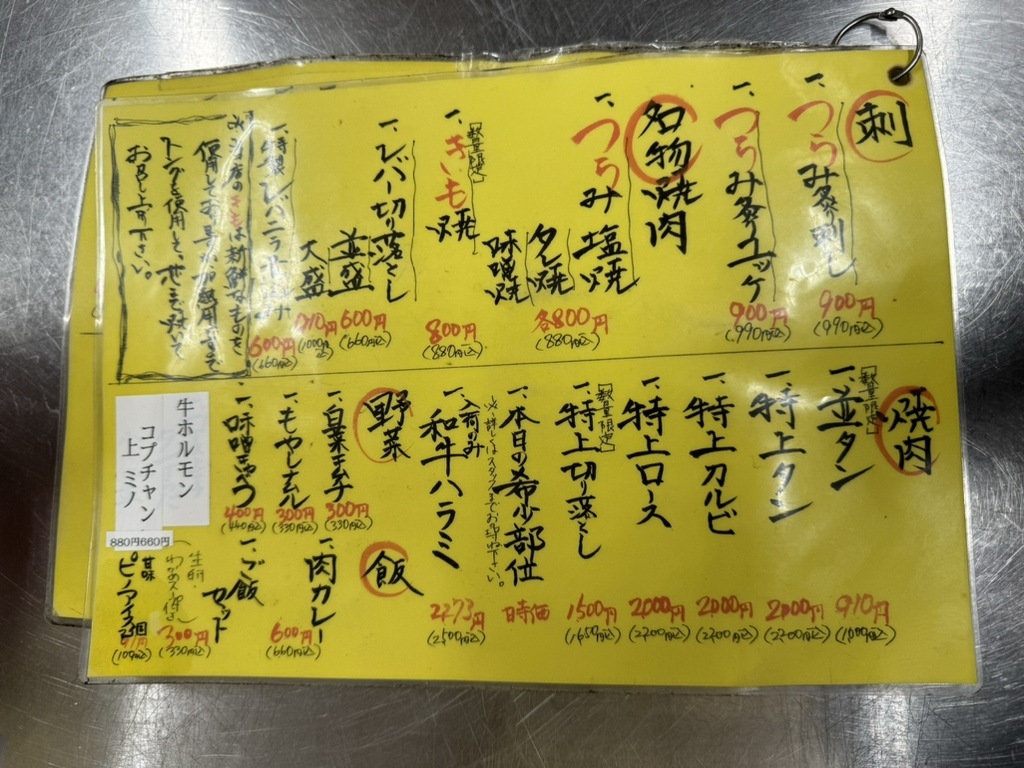 刺
一、つらみ炙り刺し
900円
(990円込)
一、つらみ炙りユッケ
900円
(990円込)
名物焼肉
一、つらみ塩焼
タレ焼
味噌焼
各800円
(880円込)
【数量限定】
一、きも焼
800円
(880円込)
一、レバー切り落とし
並盛
600円
(660円込)
大盛
910円
(1000円込)
一、特製レバニラ
600円
(660円込)
※当店のきもは新鮮なものを
使用しておりますが
トングを使用して、
お召し上がり下さい。
焼肉
【数量限定】
一、並タン
910円
一、特上タン
2000円
(2200円込)
一、特上カルビ
2000円
(2200円込)
一、特上ロース
2000円
(2200円込)
【数量限定】
一、特上切り落とし
1500円
(1650円込)
一、本日の希少部位
※詳しくはスタッフまでお尋ね下さい。
時価
入荷のみ
一、和牛ハラミ
2273円
(2500円込)
野菜
一、白菜キムチ
300円
(330円込)
一、もやしナムル
300円
(330円込)
一、味噌キャベツ
400円
(440円込)
牛ホルモン
コプチャン
上ミノ
880円660円
飯
一、肉カレー
600円
(660円込)
一、ご飯
セット
300円
(330円込)
甘味
ピノアイス